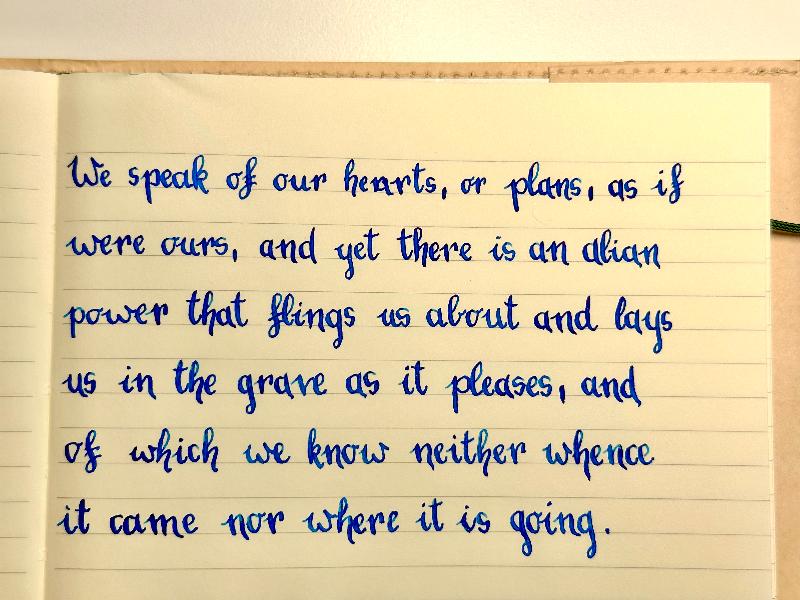 We speak of our hearts, or plans, as if
were ours, and yet there is an alian
power that flings us about and lays
us in the grave as it pleases, and
of which we know neither whence
it came nor where it is going.